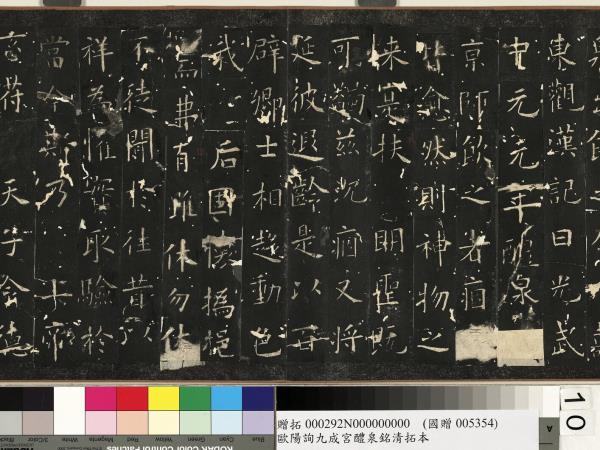 東觀漢記曰光武
中元元年醴泉
京師飲之者痼
皆愈然則神物之
来寔扶明聖既
可蠲茲沉痼又將
延彼遐齡是以百
辟卿士相趍動色
我后固懷撝挹
弗有雖休勿休
不徒聞於往昔以
祥為懼實取驗於
當今斯乃上帝
玄符天子令德
Blue
Cyan
Green
Yellow
Red
Magenta
White
3/Color
Black
KODAK Color Control Patches
贈拓 000292N000000000 (國贈 005354)
歐陽詢九成宮醴泉銘清拓本
A
10